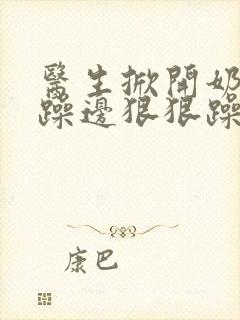 醫生掀開奶
躁邊狠狠躁
康巴